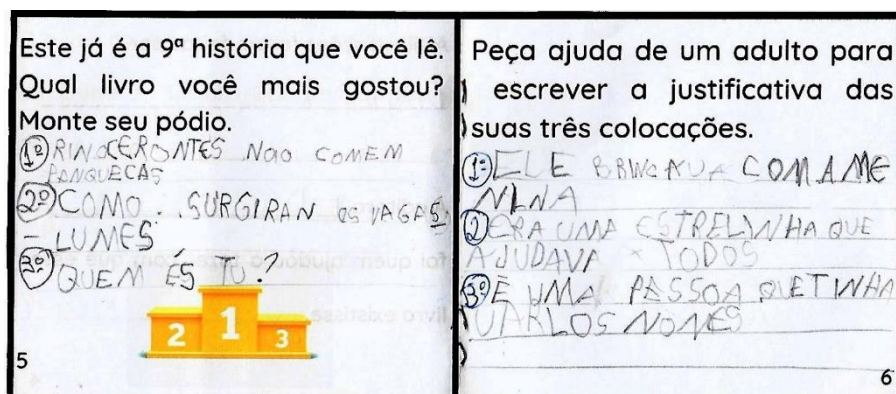 Este já é a 9ª história que você lê.
Qual livro você mais gostou?
Monte seu pódio.
1º RINOCERONTES NAO COMEM
PANQUECAS
2º COMO . . SURGIRAN OS VAGAS
- LUMES
3º QUEM ÉS TU?
2 1 3
5
Peça ajuda de um adulto para
escrever a justificativa das
suas três colocações.
1º ELE BRINCAVA COM A ME
NINA
2 ERA UMA ESTRELINHA QUE
AJUDAVA TODOS
3º E UMA PESSOA QUE TINHA
VARLOS NOMES
6